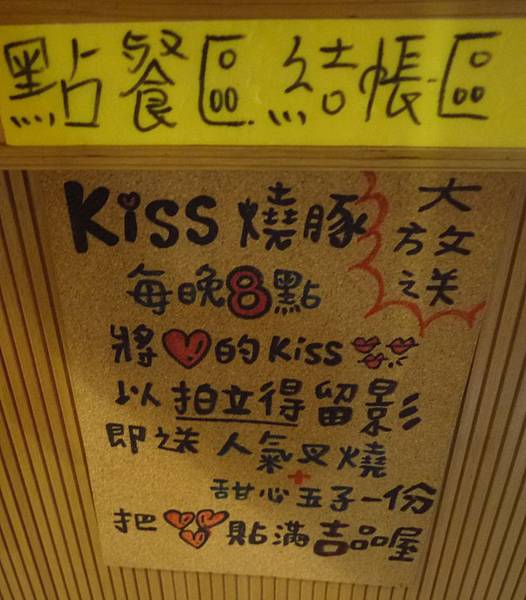 點餐區 結帳區
Kiss 燒豚
大
放文
之送
每晚8點
將的Kiss
以拍立得留影
即送人氣叉燒
+
甜心玉子一份
把貼滿吉品屋